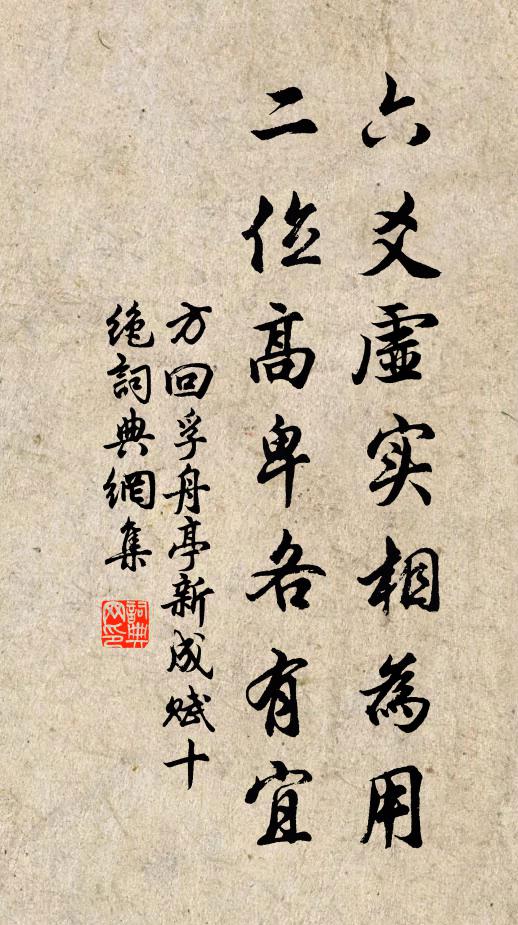 六爻虛实相為用
二位高卑各有宜
方回孚舟亭新成赋十
绝詞典網集
詞典
网印